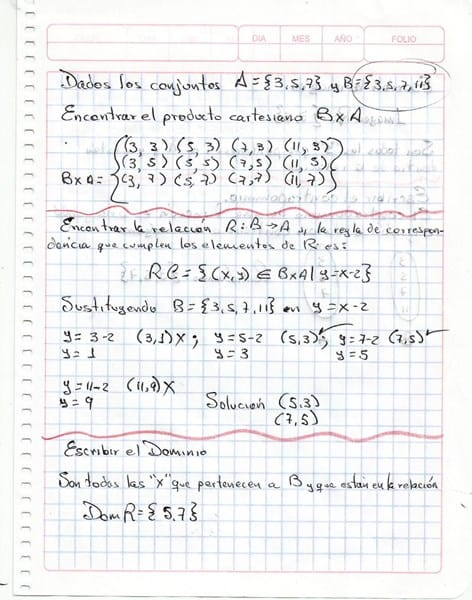 DIA MES AÑO FOLIO
Dados los conjuntos A={3,5,7} y B={3,5,7,11}
Encontrar el producto cartesiano B×A
(3, 3) (5, 3) (7, 3) (11, 3)
(3, 5) (5, 5) (7, 5) (11, 5)
B×A= { (3, 7) (5, 7) (7, 7) (11, 7) }
Encontrar la relación R:B→A si la regla de correspon-
dencia que cumplen los elementos de R es:
R C = {(x,y) ∈ B×A | y=x-2}
Sustituyendo B={3,5,7,11} en y=x-2
y=3-2 (3,1)X ; y=5-2 (5,3)✓; y=7-2 (7,5)✓
y=1 y=3 y=5
y=11-2 (11,9)X
y=9 Solución (5,3)
(7,5)
Escribir el Dominio
Son todas las "x" que pertenecen a B y que están en la relación
Dom R={5,7}